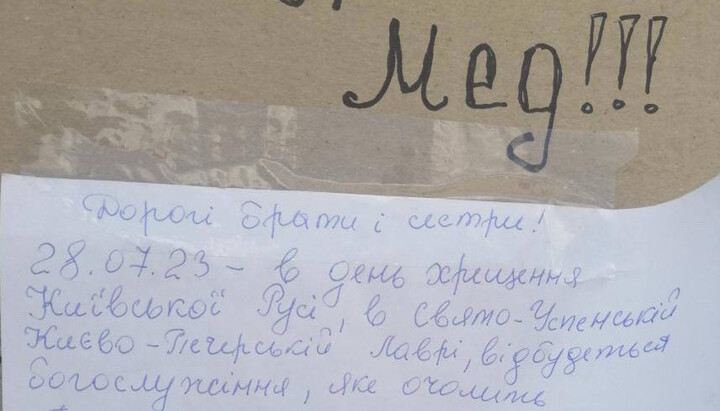 Мед!!!
Дорогі брати і сестри!
28.07.23 - в день хрещення
Київської Русі, в Свято-Успенській
Києво-Печерській Лаврі, відбудеться
богослужіння, яке очолить